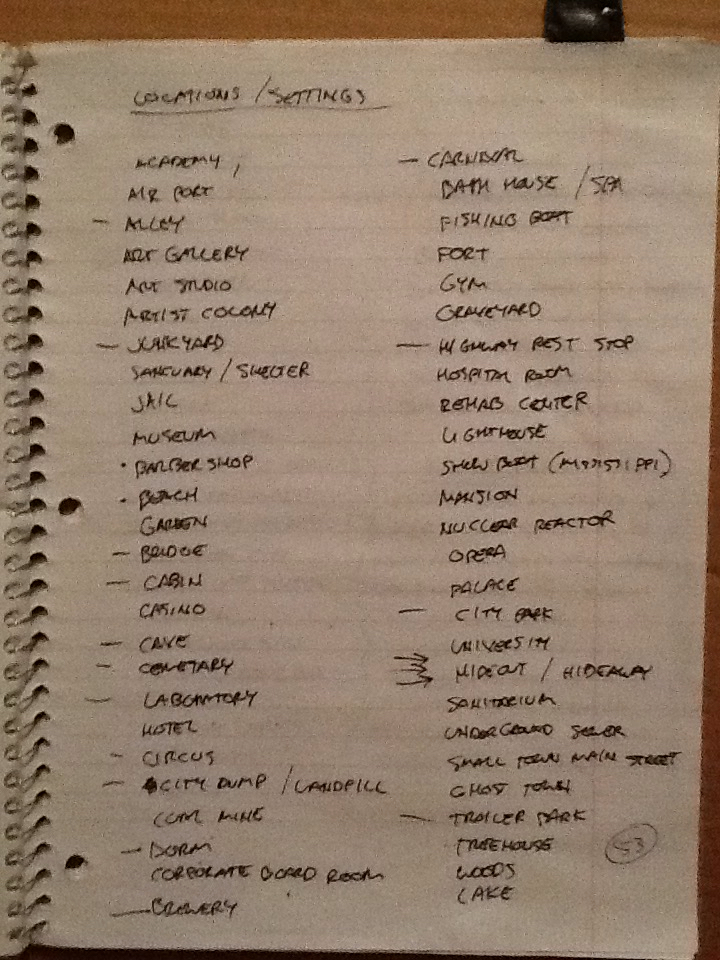 LOCATIONS / SETTINGS
ACADEMY,
AIR PORT
— ALLEY
ART GALLERY
ART STUDIO
ARTIST COLONY
— JUNKYARD
SANCUARY / SHELTER
JAIL
MUSEUM
· BARBER SHOP
· BEACH
GARDEN
— BRIDGE
— CABIN
CASINO
— CAVE
— CEMETARY
— LABORATORY
HOTEL
— CIRCUS
— CITY DUMP / LANDFILL
COAL MINE
— DORM
CORPORATE BOARD ROOM
— BREWERY
— CARNIVAL
BATH HOUSE / SPA
FISHING BOAT
FORT
GYM
GRAVEYARD
— HIGHWAY REST STOP
HOSPITAL ROOM
REHAB CENTER
LIGHTHOUSE
SHOW BOAT (MISSISSIPPI)
MANSION
NUCLEAR REACTOR
OPERA
PALACE
— CITY PARK
UNIVERSITY
HIDEOUT / HIDEAWAY
SANITARIUM
UNDERGROUND SEWER
SMALL TOWN MAIN STREET
GHOST TOWN
— TRAILER PARK
TREEHOUSE
53
WOODS
LAKE